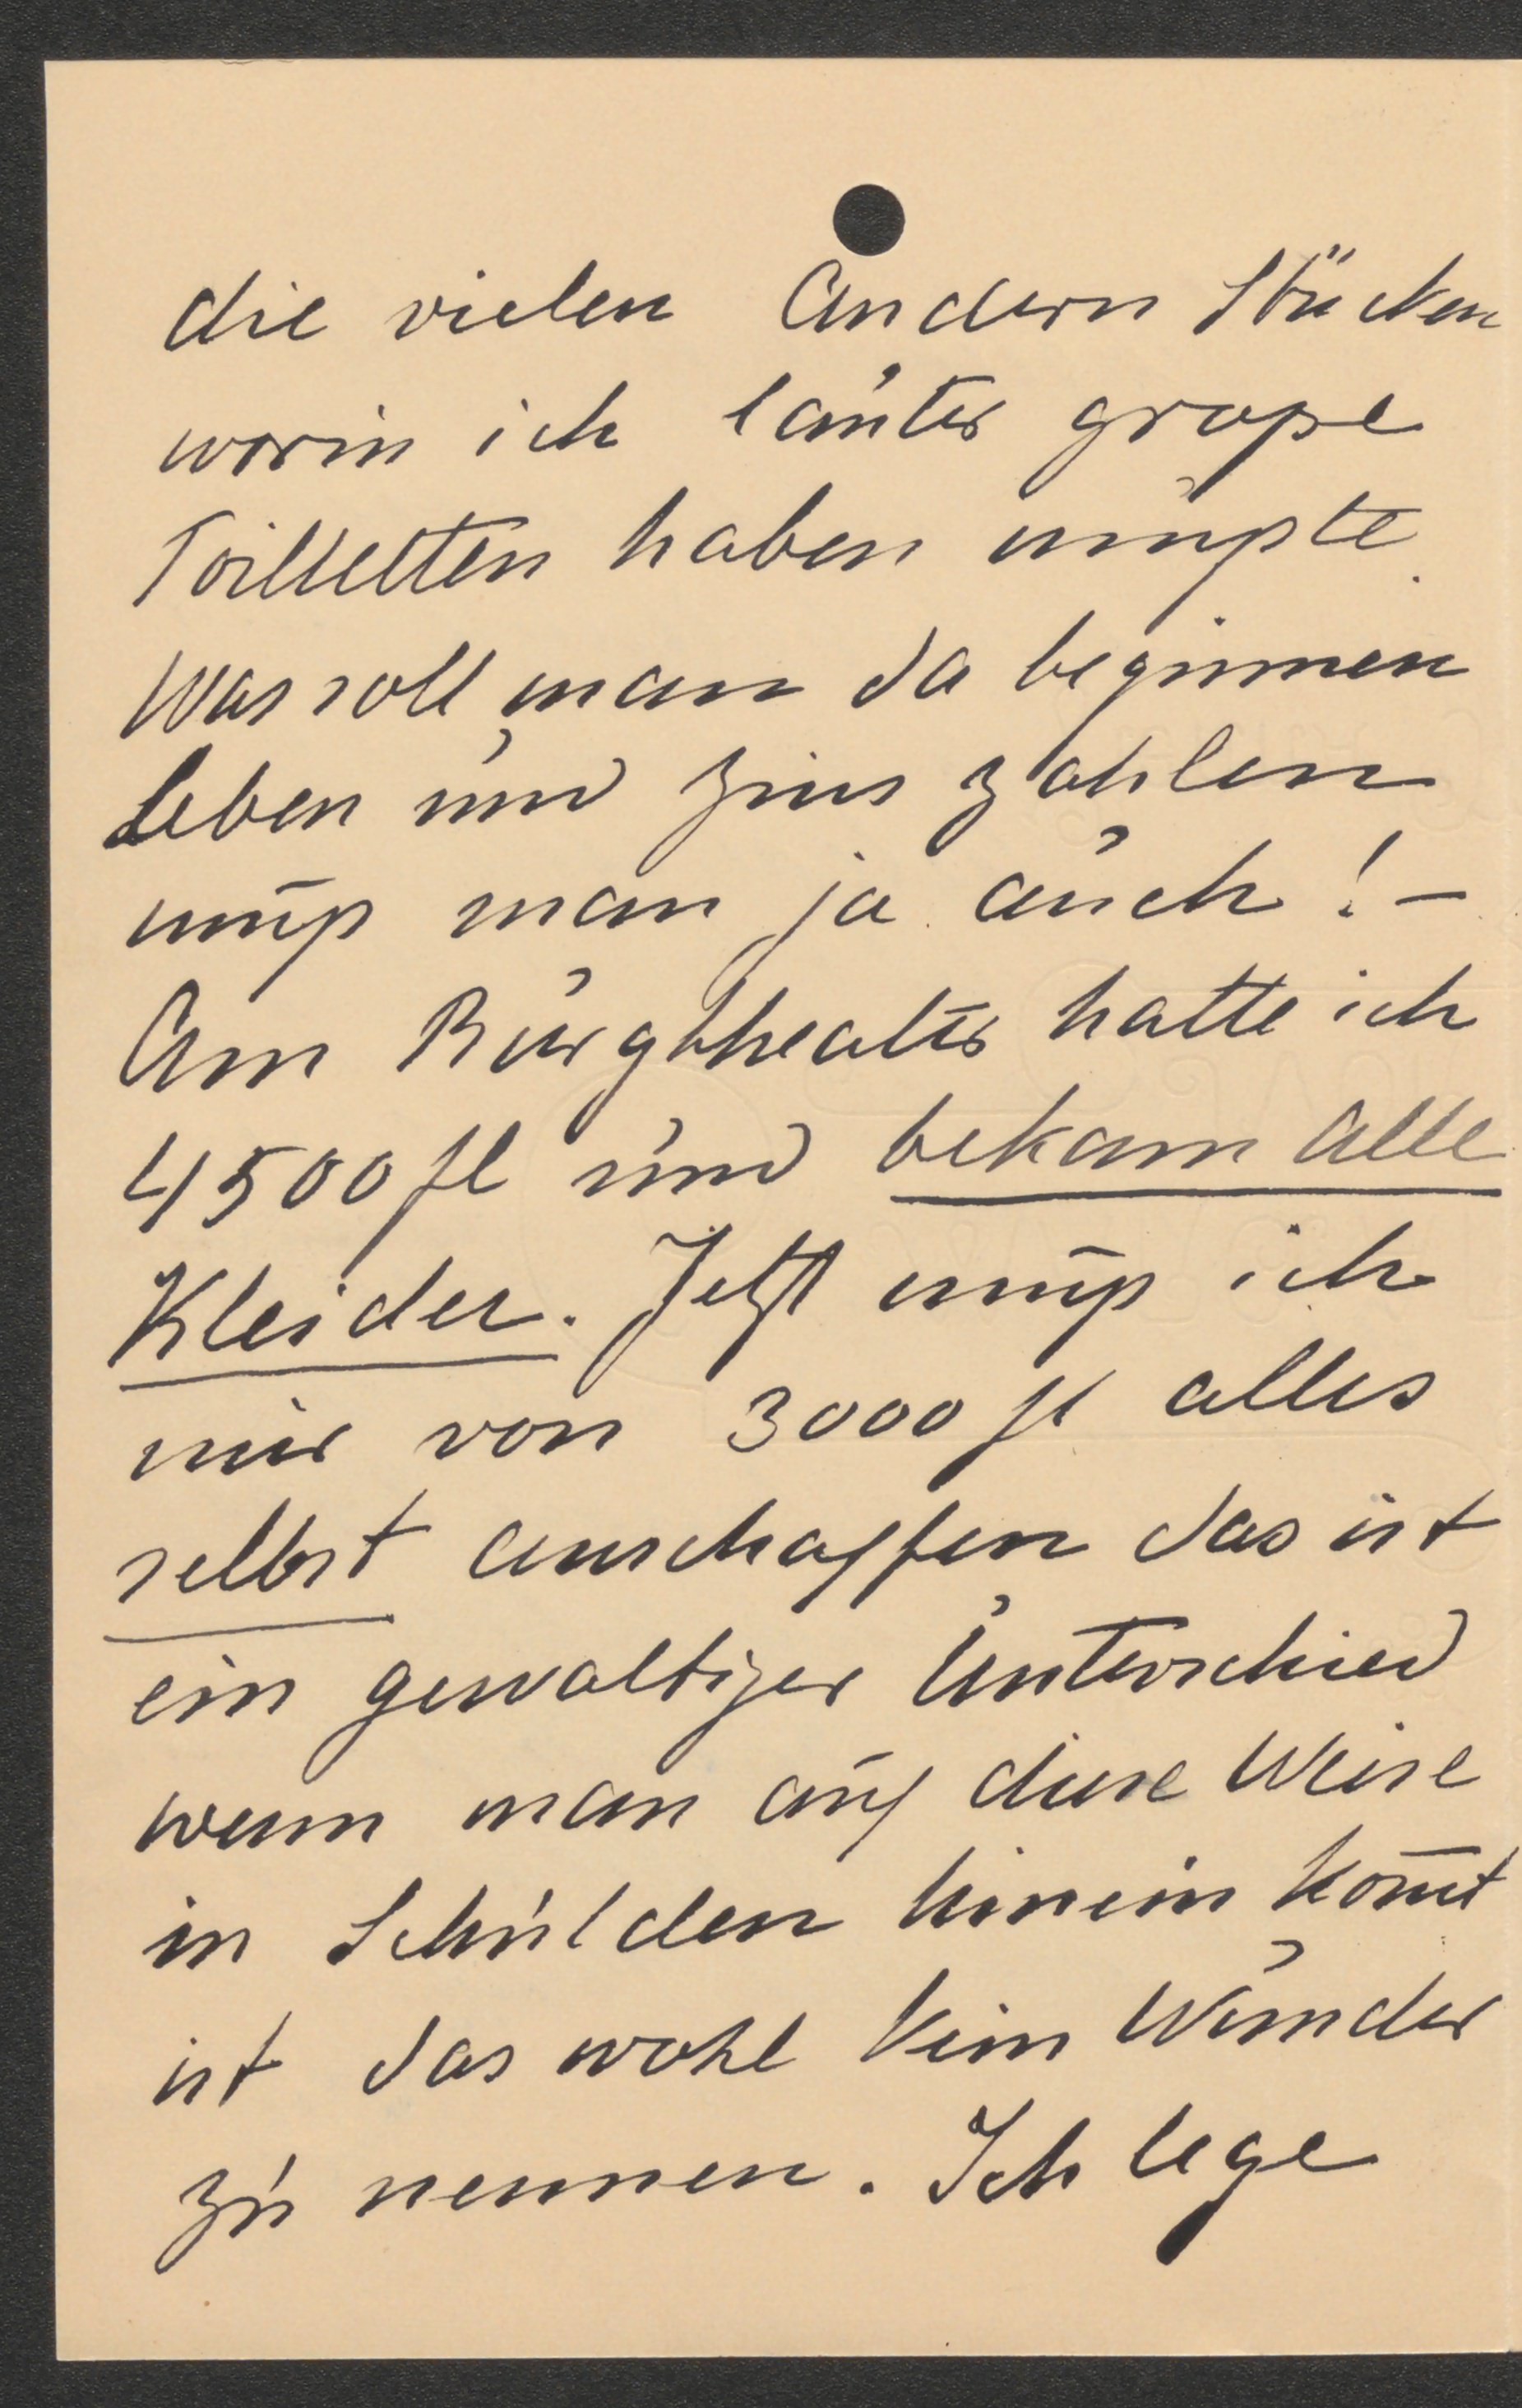 die vielen Andern Stücken
worin ich lauter große
Toilletten haben müßte.
Was soll man da beginnen
Leben und Zins zahlen
muß man ja auch! –
Am Burgtheater hatte ich
4500 fl und bekam alle
Kleider. Jetzt muß ich
mir von 3000 fl alles
selbst anschaffen das ist
ein gewaltiger Unterschied
wenn man auf diese Weise
in Schulden hinein kom̄t
ist das wohl kein Wunder
zu nennen. Ich lege